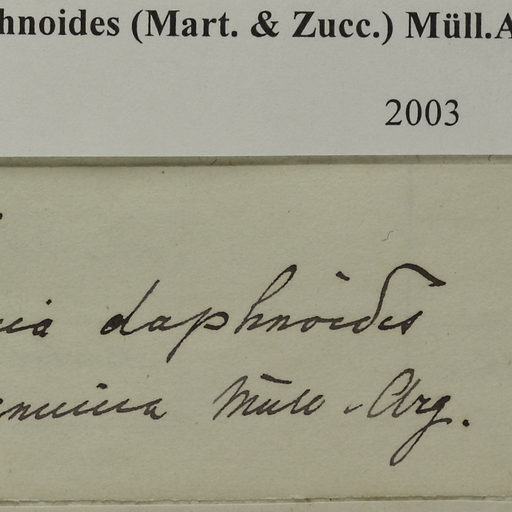 hnoides (Mart. & Zucc.) Müll.A
2003
daphnoides
Müll. Arg.